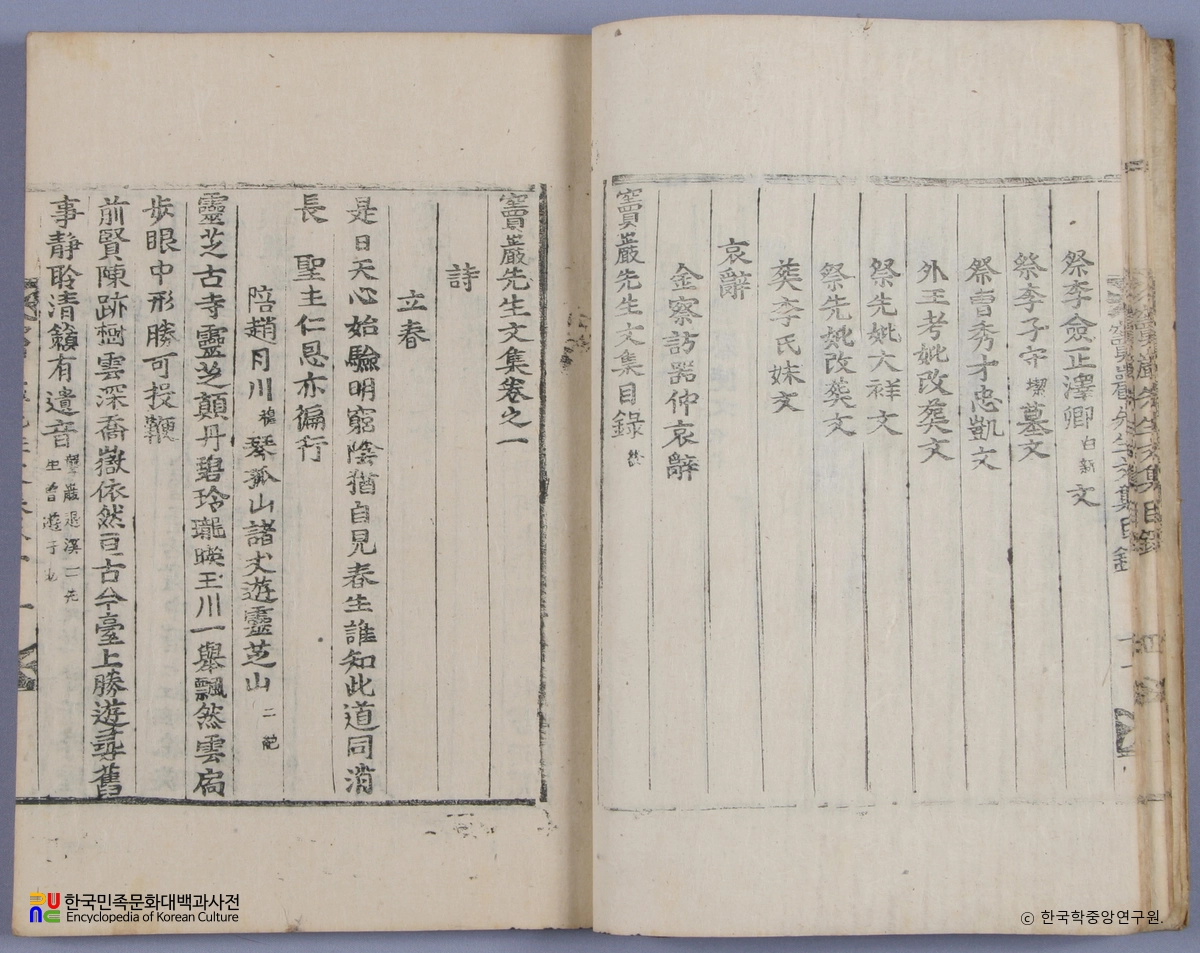 祭李僉正澤卿白新文
祭李子守墓文
祭曺秀才忠凱文
外王考妣改葬文
祭先妣大祥文
祭先妣改葬文
葬李氏妹文
哀辭
金察訪器仲哀辭
竇巖先生文集目錄終
竇巖先生文集卷之一
詩
立春
是日天心始驗明窮陰猶自見春生誰知此道同消
長 聖主仁恩亦徧行
陪趙月川穆琴孤山諸丈遊靈芝山二葩
靈芝古寺靈芝顛丹碧玲瓏暎玉川一舉飄然雲扃
步眼中形勝可投鞭
前賢陳跡樹雲深喬嶽依然亘古今臺上勝遊尋舊
事靜聆清籟有遺音聾巖退溪二先
生曾遊于此
한국민족문화대백과사전
Encyclopedia of Korean Culture
© 한국학중앙연구원.